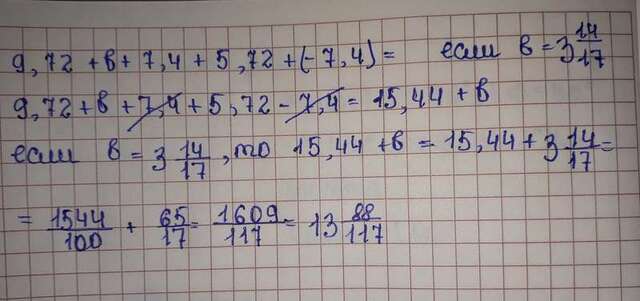 9,72 + в + 7,4 + 5,72 + (-7,4) = если в = 3 14/17
9,72 + в + 7,4 + 5,72 - 7,4 = 15,44 + в
если в = 3 14/17, то 15,44 + в = 15,44 + 3 14/17 =
= 1544/100 + 65/17 = 1609/117 = 13 88/117